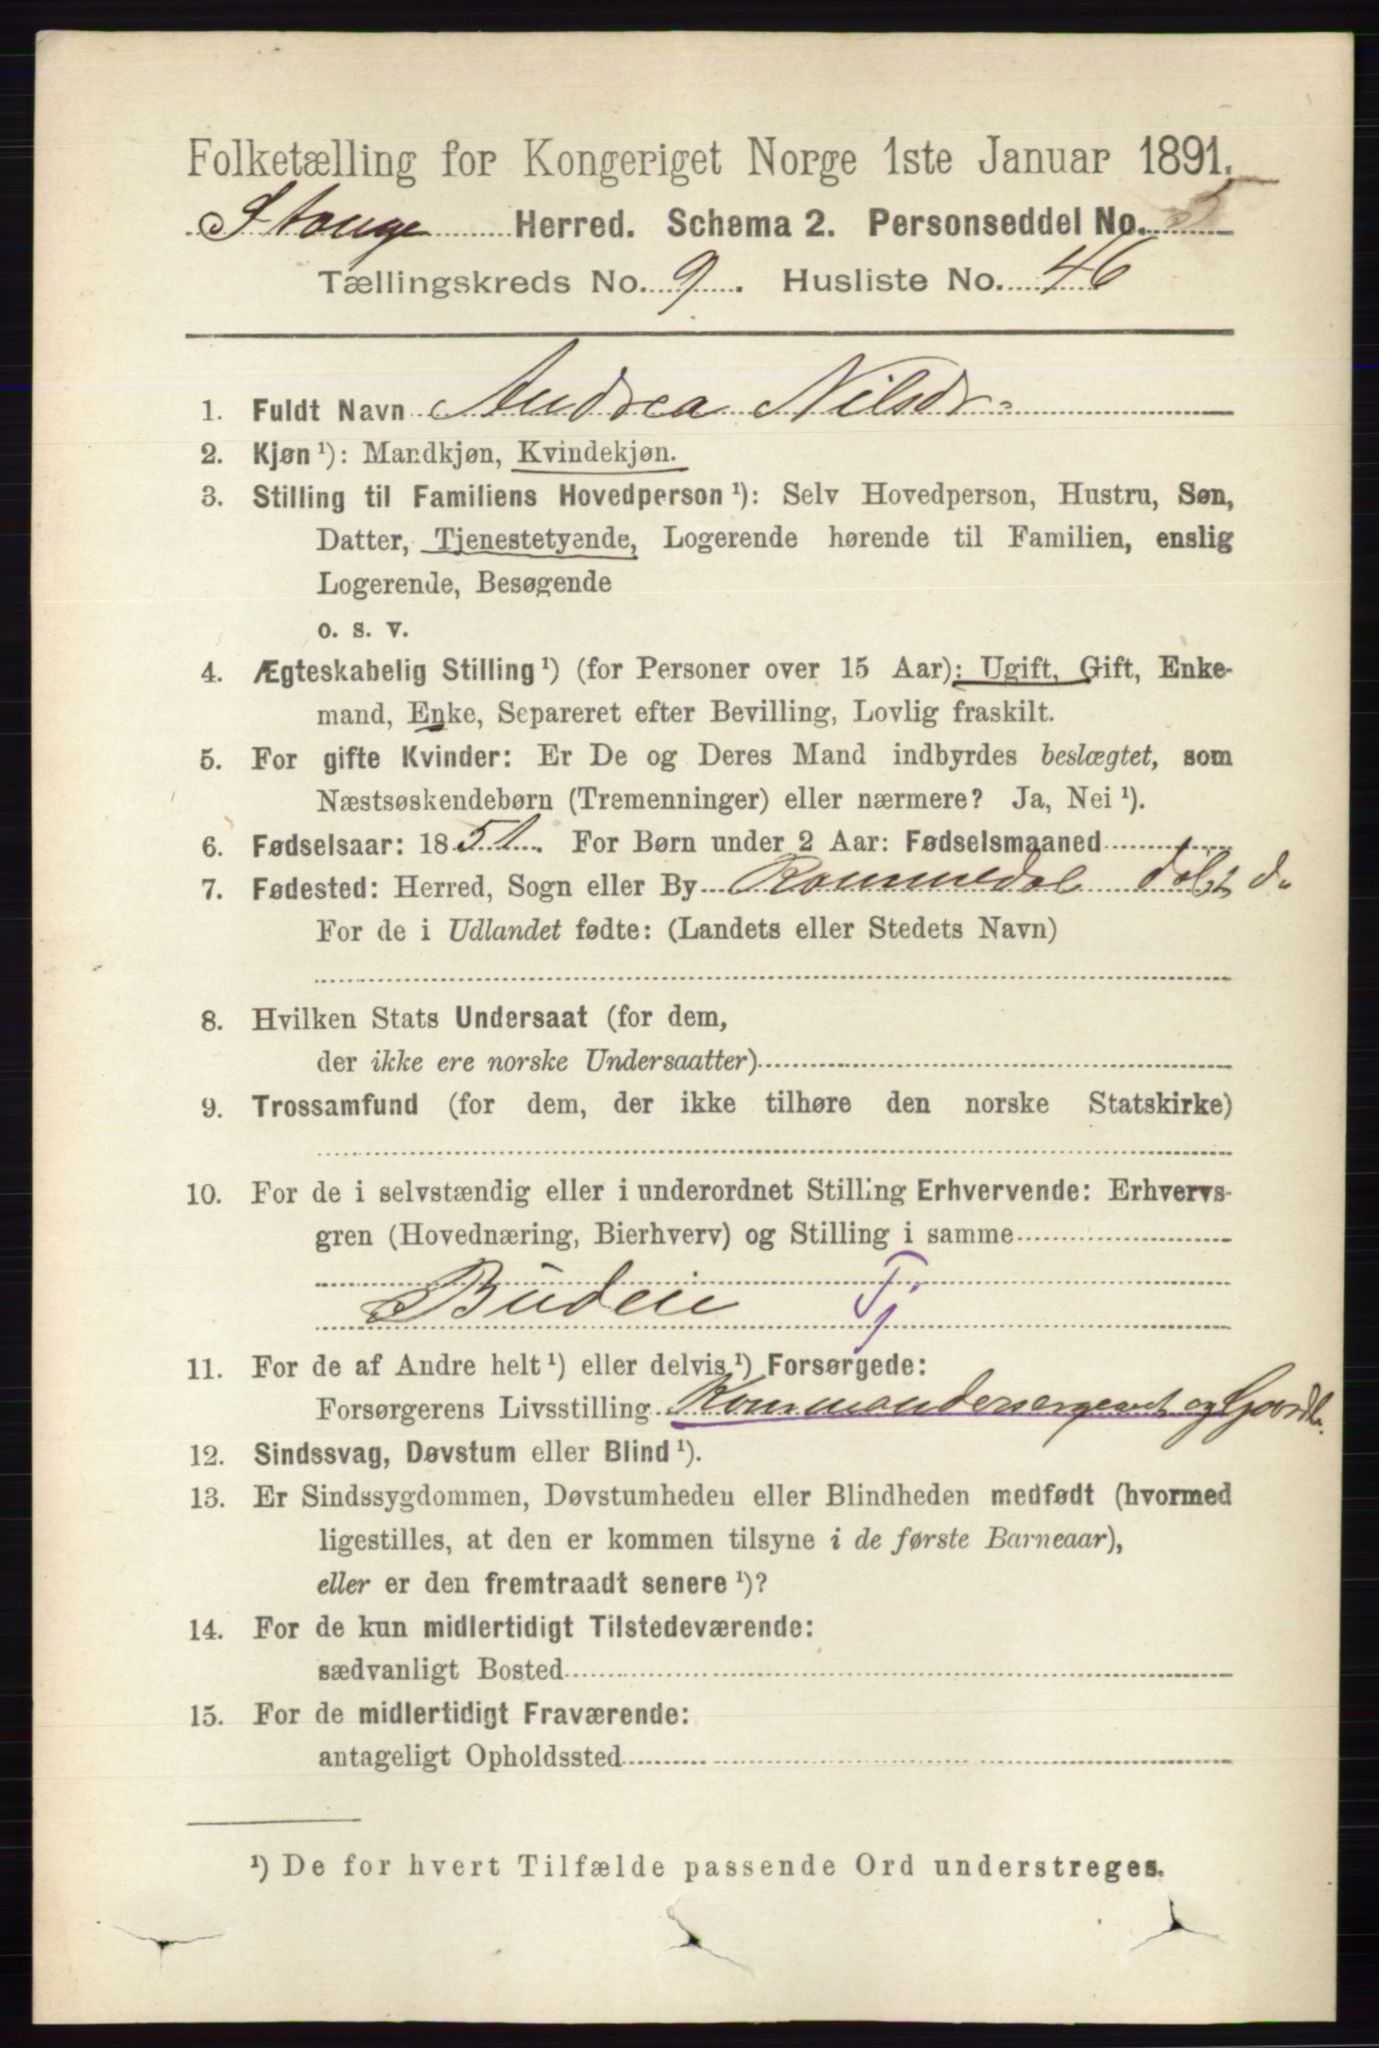 Folketælling for Kongeriget Norge 1ste Januar 1891.
Stange Herred. Schema 2. Personseddel No. 5
Tællingskreds No. 9. Husliste No. 46
1. Fuldt Navn Andrea Nilsdr.
2. Kjøn ¹): Mandkjøn, Kvindekjøn.
3. Stilling til Familiens Hovedperson ¹): Selv Hovedperson, Hustru, Søn,
Datter, Tjenestetyende, Logerende hørende til Familien, enslig
Logerende, Besøgende
o. s. v.
4. Ægteskabelig Stilling ¹) (for Personer over 15 Aar): Ugift, Gift, Enke-
mand, Enke, Separeret efter Bevilling, Lovlig fraskilt.
5. For gifte Kvinder: Er De og Deres Mand indbyrdes beslægtet, som
Næstsøskendebørn (Tremenninger) eller nærmere? Ja, Nei ¹).
6. Fødselsaar: 1851. For Børn under 2 Aar: Fødselsmaaned
7. Fødested: Herred, Sogn eller By Rommedal
For de i Udlandet fødte: (Landets eller Stedets Navn)
8. Hvilken Stats Undersaat (for dem,
der ikke ere norske Undersaatter)
9. Trossamfund (for dem, der ikke tilhøre den norske Statskirke)
10. For de i selvstændig eller i underordnet Stilling Erhvervende: Erhvervs-
gren (Hovednæring, Bierhverv) og Stilling i samme
Budeie Tj
11. For de af Andre helt ¹) eller delvis ¹) Forsørgede:
Forsørgerens Livsstilling Kommandersergeant og Gaardb.
12. Sindssvag, Døvstum eller Blind ¹).
13. Er Sindssygdommen, Døvstumheden eller Blindheden medfødt (hvormed
ligestilles, at den er kommen tilsyne i de første Barneaar),
eller er den fremtraadt senere ¹)?
14. For de kun midlertidigt Tilstedeværende:
sædvanligt Bosted
15. For de midlertidigt Fraværende:
antageligt Opholdssted
¹) De for hvert Tilfælde passende Ord understreges.